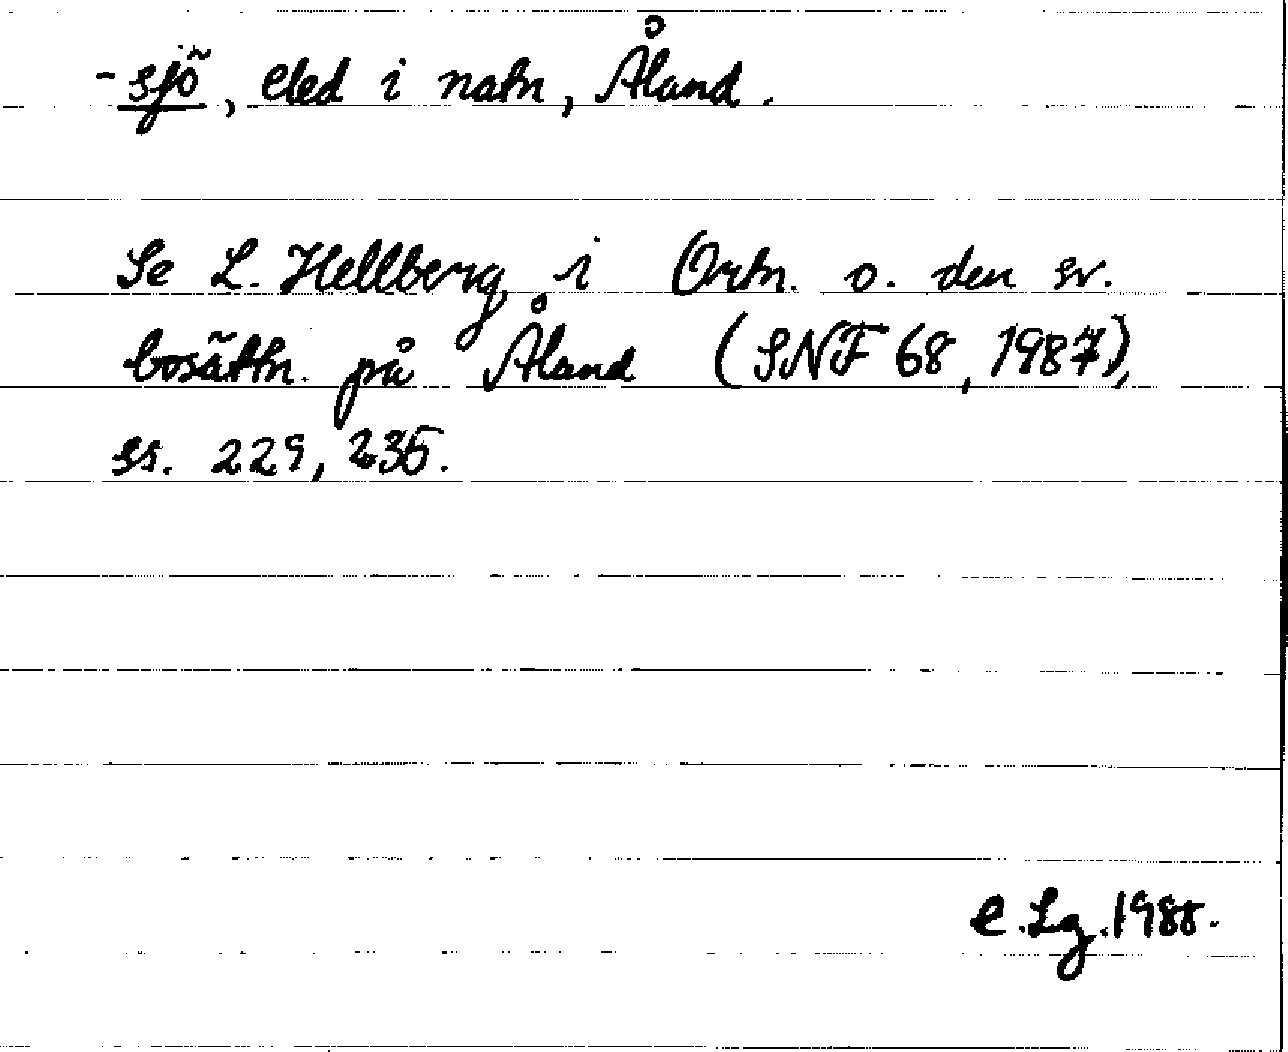 -sjö, eled i natn, Åland.
Se L. Hellberg i Ortn. o. den sv.
bosättn. på Åland (SNF 68, 1987),
ss. 229, 235.
e.Lg.1988.